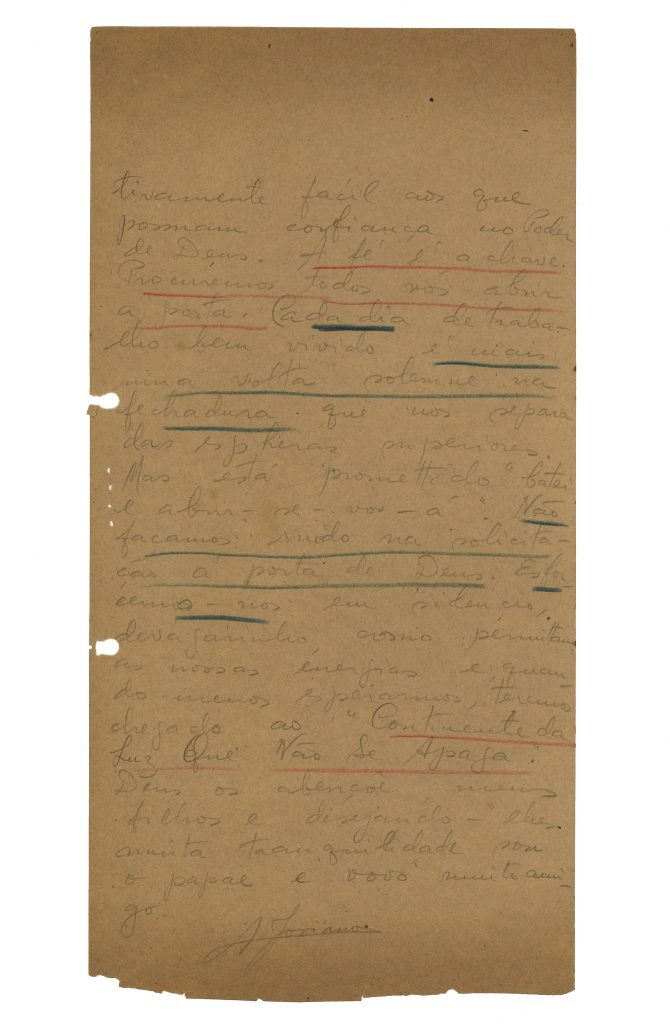 tivamente facil aos que
possuam confiança no Poder
de Deus. A fé é a chave.
Procurémos todos nós abrir
a porta. Cada dia de traba-
lho bem vivido é mais
uma volta solemne na
fechadura que nos separa
das espheras superiores.
Mas está promettido "batei
e abrir-se-vos-á". Não
façamos ruido na solicita-
ção á porta de Deus. Esfor-
cemo-nos em silencio,
devagarinho, como permittam
as nossas energias e quan-
do menos esperarmos, teremos
chegado ao "Continente da
Luz Que Não Se Apaga".
Deus os abençôe meus
filhos e desejando-lhes
muita tranquilidade sou
o papae e vovô muito ami-
go
J Joviano